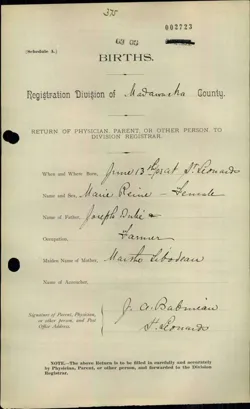 375
002723
(Schedule A.)
BIRTHS.
Registration Division of Madawaska County.
RETURN OF PHYSICIAN, PARENT, OR OTHER PERSON, TO
DIVISION REGISTRAR.
When and Where Born, June 13 at St. Leonards
Name and Sex, Marie Reine - Female
Name of Father, Joseph Dubé
Occupation, Farmer
Maiden Name of Mother, Marthe Libodeau
Name of Accoucheur,
Signature of Parent, Physician,
or other person, and Post
Office Address.
J. A.
St. Leonards
NOTE.—The above Return is to be filled in carefully and accurately
by Physician, Parent, or other person, and forwarded to the Division
Registrar.